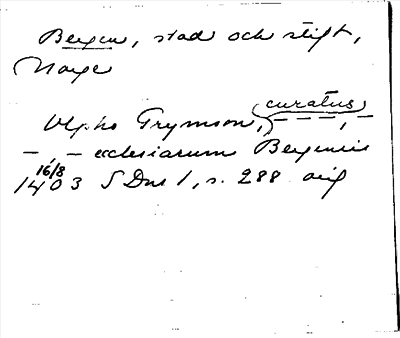 Bergen, stad och stift,
Norge
curatus
Olpho Grymson, – – – –,
– , – ecclesiarum Bergensis
16/8
1403 S Dn 1, s. 288 orig